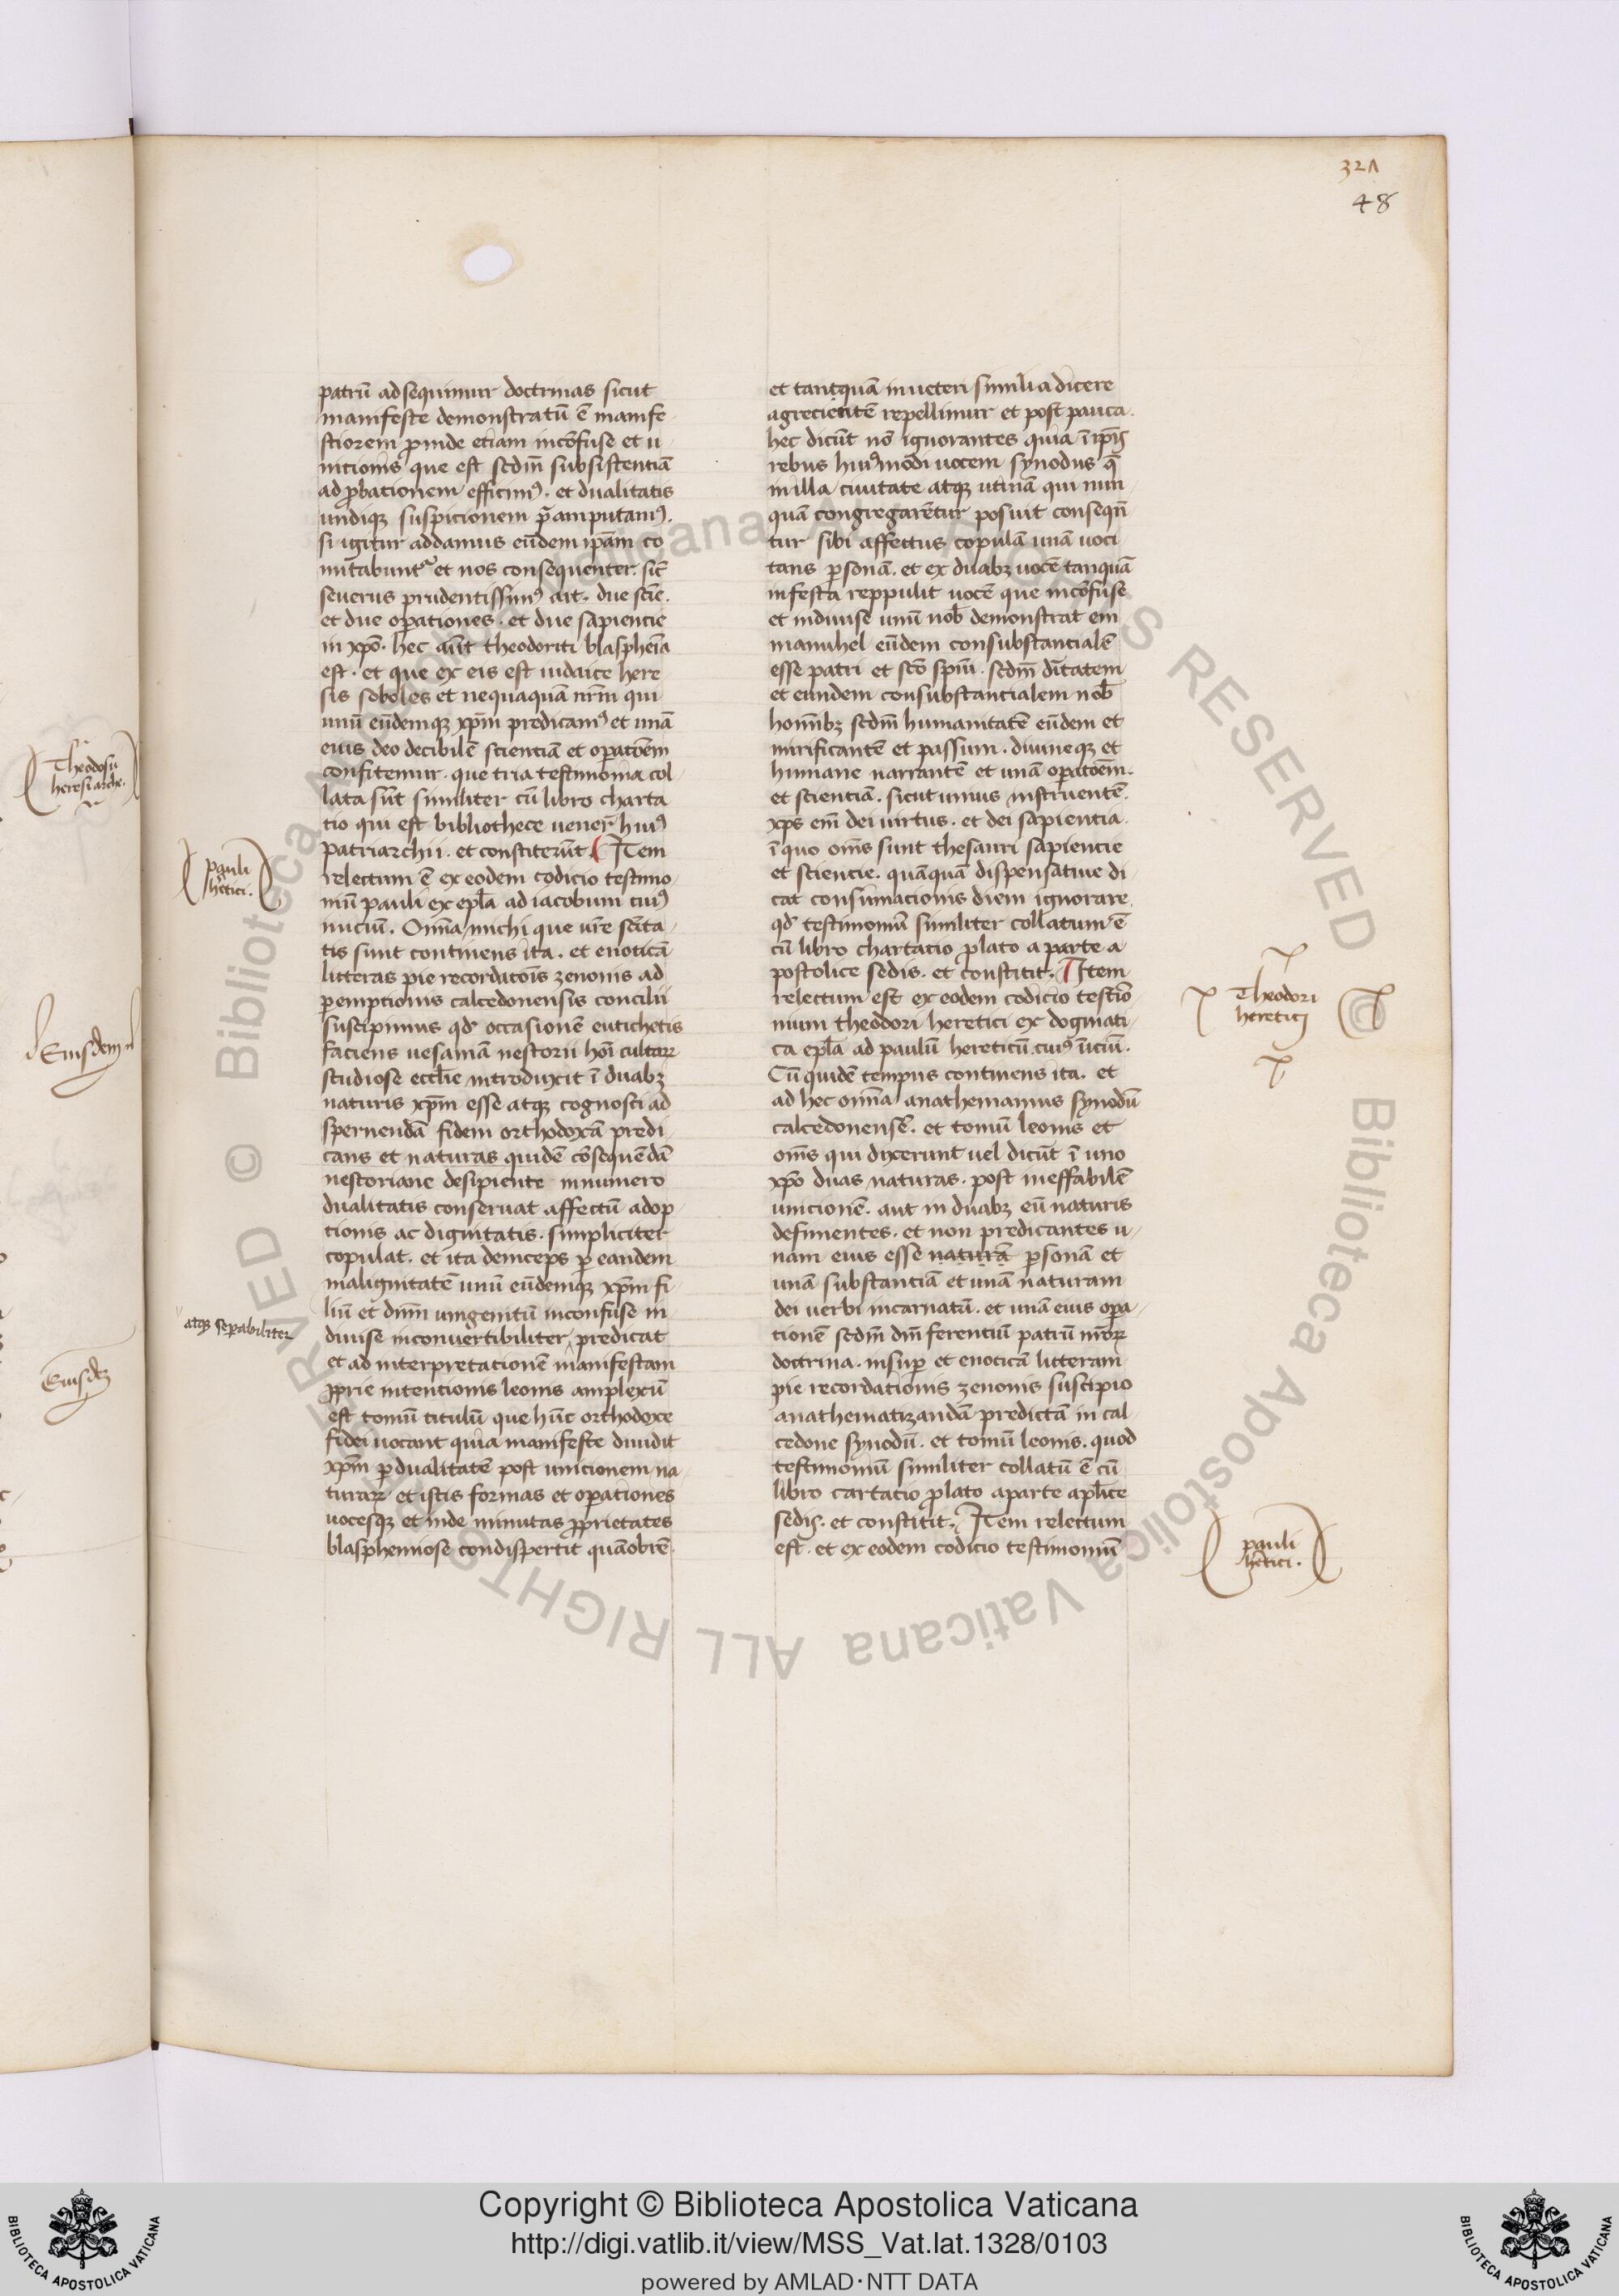 321
48
patrū adsequimur doctrinas sicut
manifeste demonstratū ē manife
stiorem proinde etiam incōfuse et u
nitionis que est scdm̄ subsistentiā
ad probationem efficimꝰ. et dualitatis
undiqꝫ suspicionem p̄amputamꝰ.
si igitur addamus eūdem ip̄am co
mitabuntᷣ et nos consequenter. sic̄
seuerus prudentissimꝰ ait. due scīe.
et due oꝑationes. et due sapiencie
in xp̄o. hec aūt theodoriti blasphēia
est. et que ex eis est iudaice here
sis soboles et nequaquā nr̄m qui
unū eūdemqꝫ xp̄m predicamꝰ et unā
euis deo decibilē scientiā et oꝑatōem
confitemur. que tria testimonia col
lata sūt similiter cū libro charta
tio qui est bibliothece uener̄ huiꝰ
patriarchii. et constiterūt. Item
relectum ē ex eodem codicio testimo
niū pauli ex epl̄a ad iacobum cuiꝰ
iniciū. Omīa michi que ur̄e scīta
tis sunt continens ita. et enoticā
litteras pie recordatiōis zenonis ad
ꝑemptionis calcedonensis concilii
suscipimus qd̄ occasionē eutichetis
faciens uesaniā nestorii hoī cultoꝝ
studiose eccl̄ie introduxit ī duabꝫ
naturis xp̄m esse atqꝫ cognosci ad
spernendā fidem orthodoxā predi
cans et naturas quidē cōsequēdā
nestoriane desipiente innumero
dualitatis conseruat affectū adop
tionis ac dignitatis. simpliciter
copulat. et ita deinceps ꝑ eandem
malignitatē unū eūdemqꝫ xp̄m fi
liū et dn̄m unigenitū inconfuse in
diuise inconuertibiliter predicat
et ad interpretationē manifestam
ꝓprie intentionis leonis amplexū
est tomū titulū que hūc orthodoxe
fidei uocant quia manifeste diuidit
xp̄m ꝑ dualitatē post unicionem na
turaꝝ et istis formas et oꝑationes
uocesqꝫ et inde minutas ꝓprietates
blasphemose condispertit quāobrē.
pauli
hētici.
atqꝫ seꝑabiliter
et tantquā in ueteri similia dicere
agrecientē repellimur et post pauca.
hec dicūt nō ignorantes quia ī ip̄is
rebus huiꝰmodi uocem synodus q̄
in illa ciuitate atqꝫ utinā qui nun
quā congregarētur posuit consequn̄
tur sibi affectus copulā unā uoci
tans ꝑsonā. et ex duabꝫ uocē tanquā
infesta reppulit uocē que incōfuse
et indiuise unū nob̄ demonstrat em
manuhel eūdem consubstancialē
esse patri et sc̄o spiū. scdm̄ dītatem
et eundem consubstantialem nob̄
homībꝫ scdm̄ humanitatē eūdem et
mirificantē et passum. diuineqꝫ et
humane narrantē et unā oꝑatōem.
et scientiā. sicut unius instruentē.
xp̄s em̄ dei uirtus. et dei sapientia.
ī quo om̄s sunt thesauri sapiencie
et sciencie. quāquā dispensatiue di
cat consumacionis diem ignorare
qd̄ testimoniū similiter collatum ē
cū libro chartacio ꝓlato a parte a
postolice sedis. et constitit. Item
relectum est ex eodem codicio testīo
nium theodori heretici ex dogmati
ca epl̄a ad paulū hereticū cuiꝰ īiciū.
Cū quidē tempus continens ita. et
ad hec omīa anathemamus synodū
calcedonensē. et tomū leonis et
om̄s qui dixerunt uel dicūt ī uno
xp̄o duas naturas. post ineffabilē
unicionē. aut in duabꝫ eū naturis
definentes. et non predicantes u
nam eius esse naturā ꝑsonā et
unā substantiā et unā naturam
dei uerbi incarnatū. et unā eius oꝑa
tionē scdm̄ dm̄ ferentiū patrū nr̄oꝝ
doctrina. insuꝑ et enoticā litteram
pie recordationis zenonis suscipio
anathematizandā predictā in cal
cedone synodū. et tomū leonis. quod
testimoniū similiter collatū ē cū
libro cartacio ꝓlato aparte apl̄ice
sedis. et constitit. Item relectum
est. et ex eodem codicio testimoniū
Theodori
heretici
pauli
hētici.
Theodosii
heresiarche.
Eiusdem
Eiusdē
Copyright © Biblioteca Apostolica Vaticana
http://digi.vatlib.it/view/MSS_Vat.lat.1328/0103
powered by AMLAD·NTT DATA
BIBLIOTECA APOSTOLICA VATICANA
BIBLIOTECA APOSTOLICA VATICANA
© Biblioteca Apostolica Vaticana ALL RIGHTS RESERVED
© Biblioteca Apostolica Vaticana ALL RIGHTS RESERVED